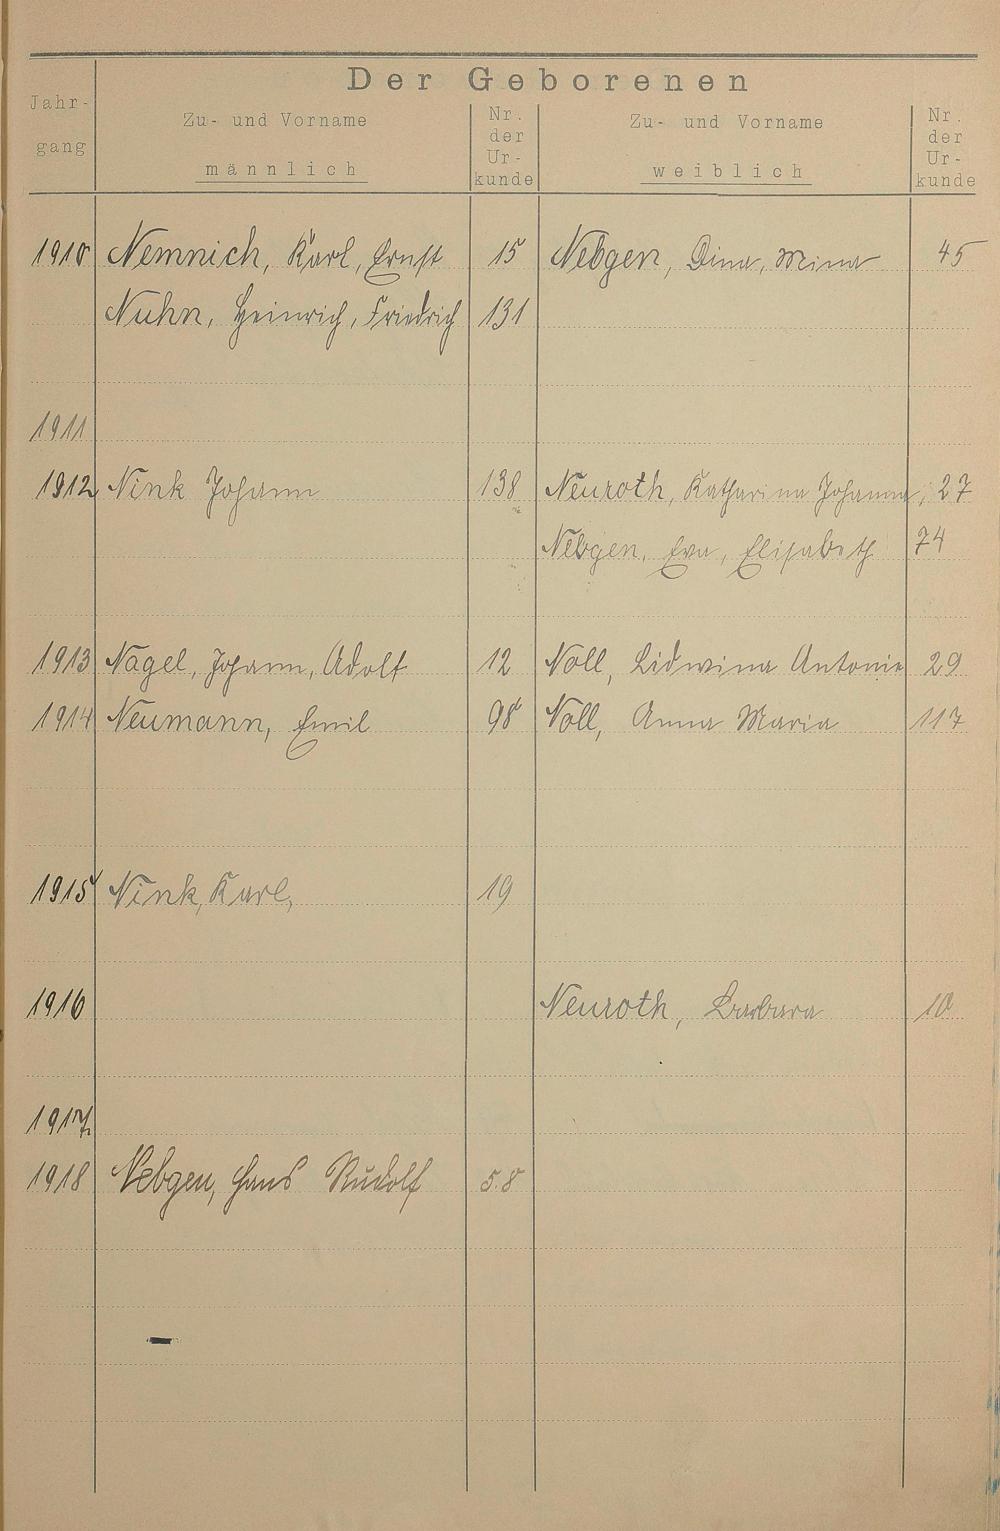 Der Geborenen
Jahr-
gang
Zu- und Vorname
männlich
Nr.
der
Ur-
kunde
Zu- und Vorname
weiblich
Nr.
der
Ur-
kunde
1910 Nemnich, Karl, Ernst 15 Nebgen, Dina, Mina 45
Nuhn, Heinrich, Friedrich 131
1911
1912 Nink Johann 138 Neuroth, Katharina Johanna, 27
Nebgen, Eva, Elisabeth 74
1913 Nagel, Johann, Adolf 12 Noll, Lidwina Antonie 29
1914 Neumann, Emil 98 Noll, Anna Maria 117
1915 Nink, Karl, 19
1916 Neuroth, Barbara 10
1917
1918 Nebgen, Hans Rudolf 58